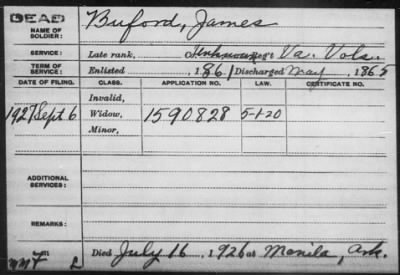 DEAD
NAME OF SOLDIER: Buford, James
SERVICE: Late rank, Unknown Reg't Va. Vols.
TERM OF SERVICE: Enlisted 1861 Discharged May, 1865
DATE OF FILING. CLASS. APPLICATION NO. LAW. CERTIFICATE NO.
Invalid,
1927 Sept 6 Widow, 1590828 5-1-20
Minor,
ADDITIONAL SERVICES:
REMARKS:
Died July 16, 1926 at Manila, Ark.